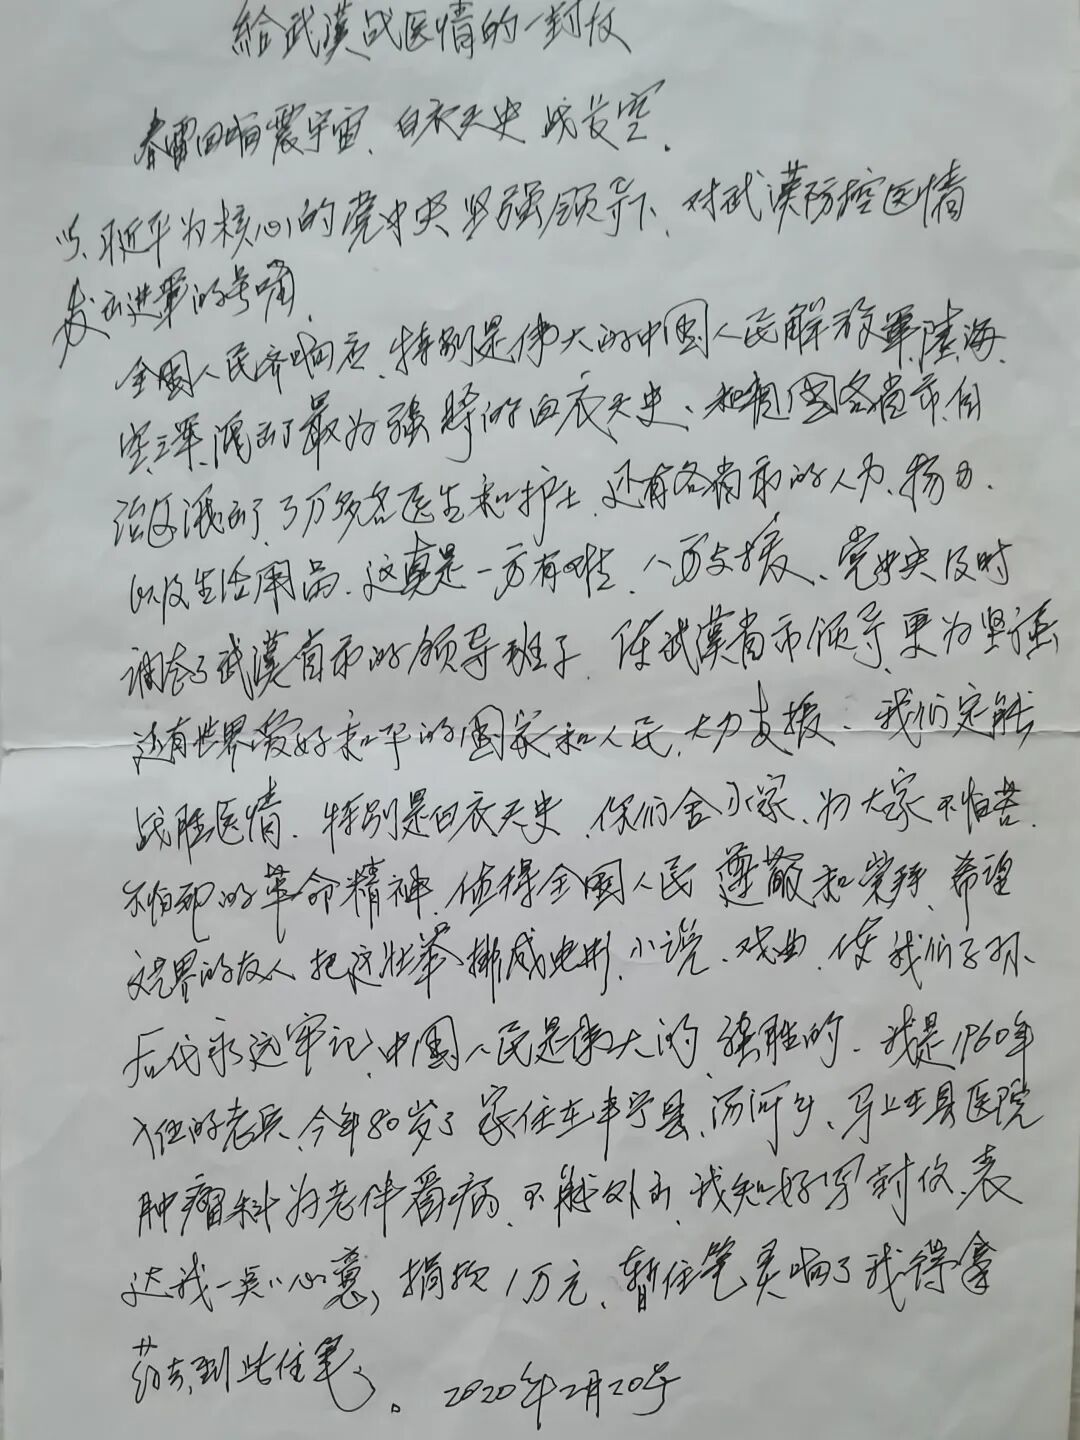 給武漢战医情的一封仪
春雷回响震宇宙、白衣天史战长空。
以、近平为核心的党中央坚强领导下、对武漢防控医情
发出进軍的号啃、
全國人民齐响应、特别是伟大的中國人民解放軍陸、海、
空三軍、派出了最为强将的白衣天史、和祖國各省市、自
治区派出了3万多名医生和护士、还有各省市的人力、物力、
以及生活用品、这真是一方有难、八方支援、党中央及时
调态了武漢省市的领导班子、使武漢省市领导、更为坚强
还有世界爱好和平的國家和人民、大力支援、我们定能
战胜医情、特别是白衣天史、你们舍小家、为大家不怕苦、
不怕死的革命精神、值得全國人民尊敬和崇拜、希望
文艺界的友人把这壮举排成电影、小说、戏曲、使我们子孙
后代永远牢记、中國人民是伟大的、强胜的、我是1960年
入伍的老兵、今年80岁了家住在丰宁县、汤河乡、马上在县医院
肿瘤科为老伴看病、不能外出、我知好写封仪、表
达我一点心意，捐款1万元、暂住笔、灵响了我得拿
药去、到此住笔。
2020年2月20号